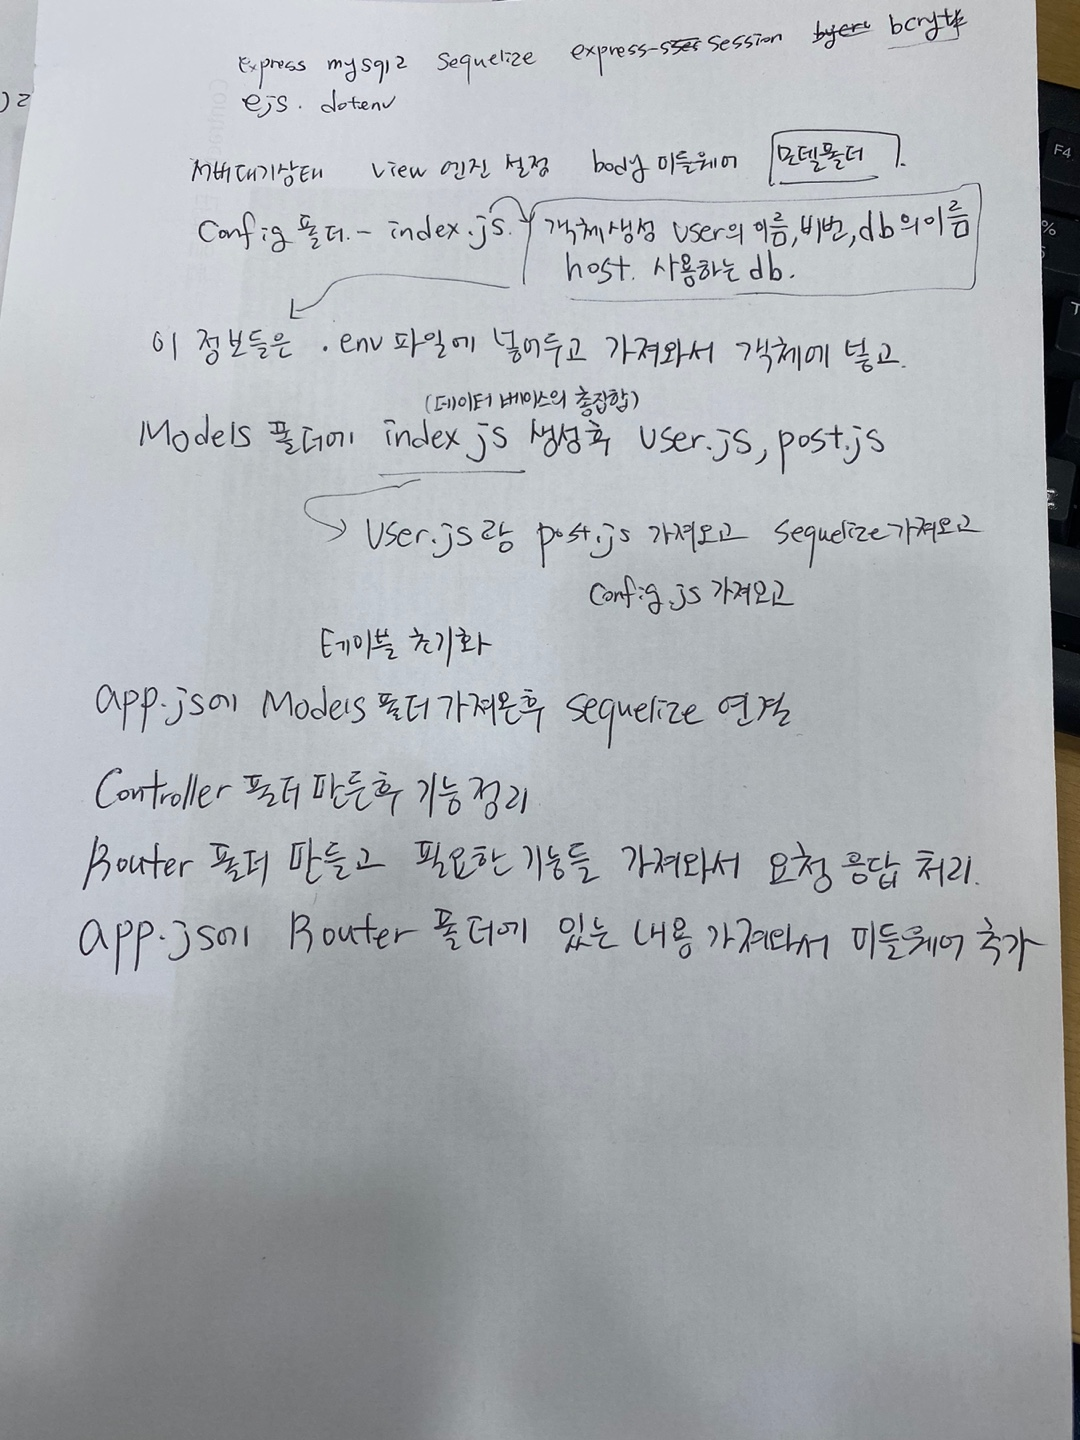 Express mysql2 sequelize express-session bcrypt
ejs. dotenv
서버대기상태 view 엔진 설정 body 미들웨어 모델폴더
Config 폴더. - index.js. 객체생성 user의 이름, 비번, db의 이름
host. 사용하는 db.
이 정보들은 .env 파일에 넣어두고 가져와서 객체에 넣고.
(데이터 베이스의 총집합)
Models 폴더에 index js 생성후 user.js, post.js
User.js랑 post.js 가져오고 sequelize 가져오고
Config.js 가져오고
테이블 초기화
app.js에 Models 폴더 가져온후 sequelize 연결
Controller 폴더 만든후 기능정리
Router 폴더 만들고 필요한 기능들 가져와서 요청 응답 처리.
app.js에 Router 폴더에 있는 내용 가져와서 미들웨어 추가